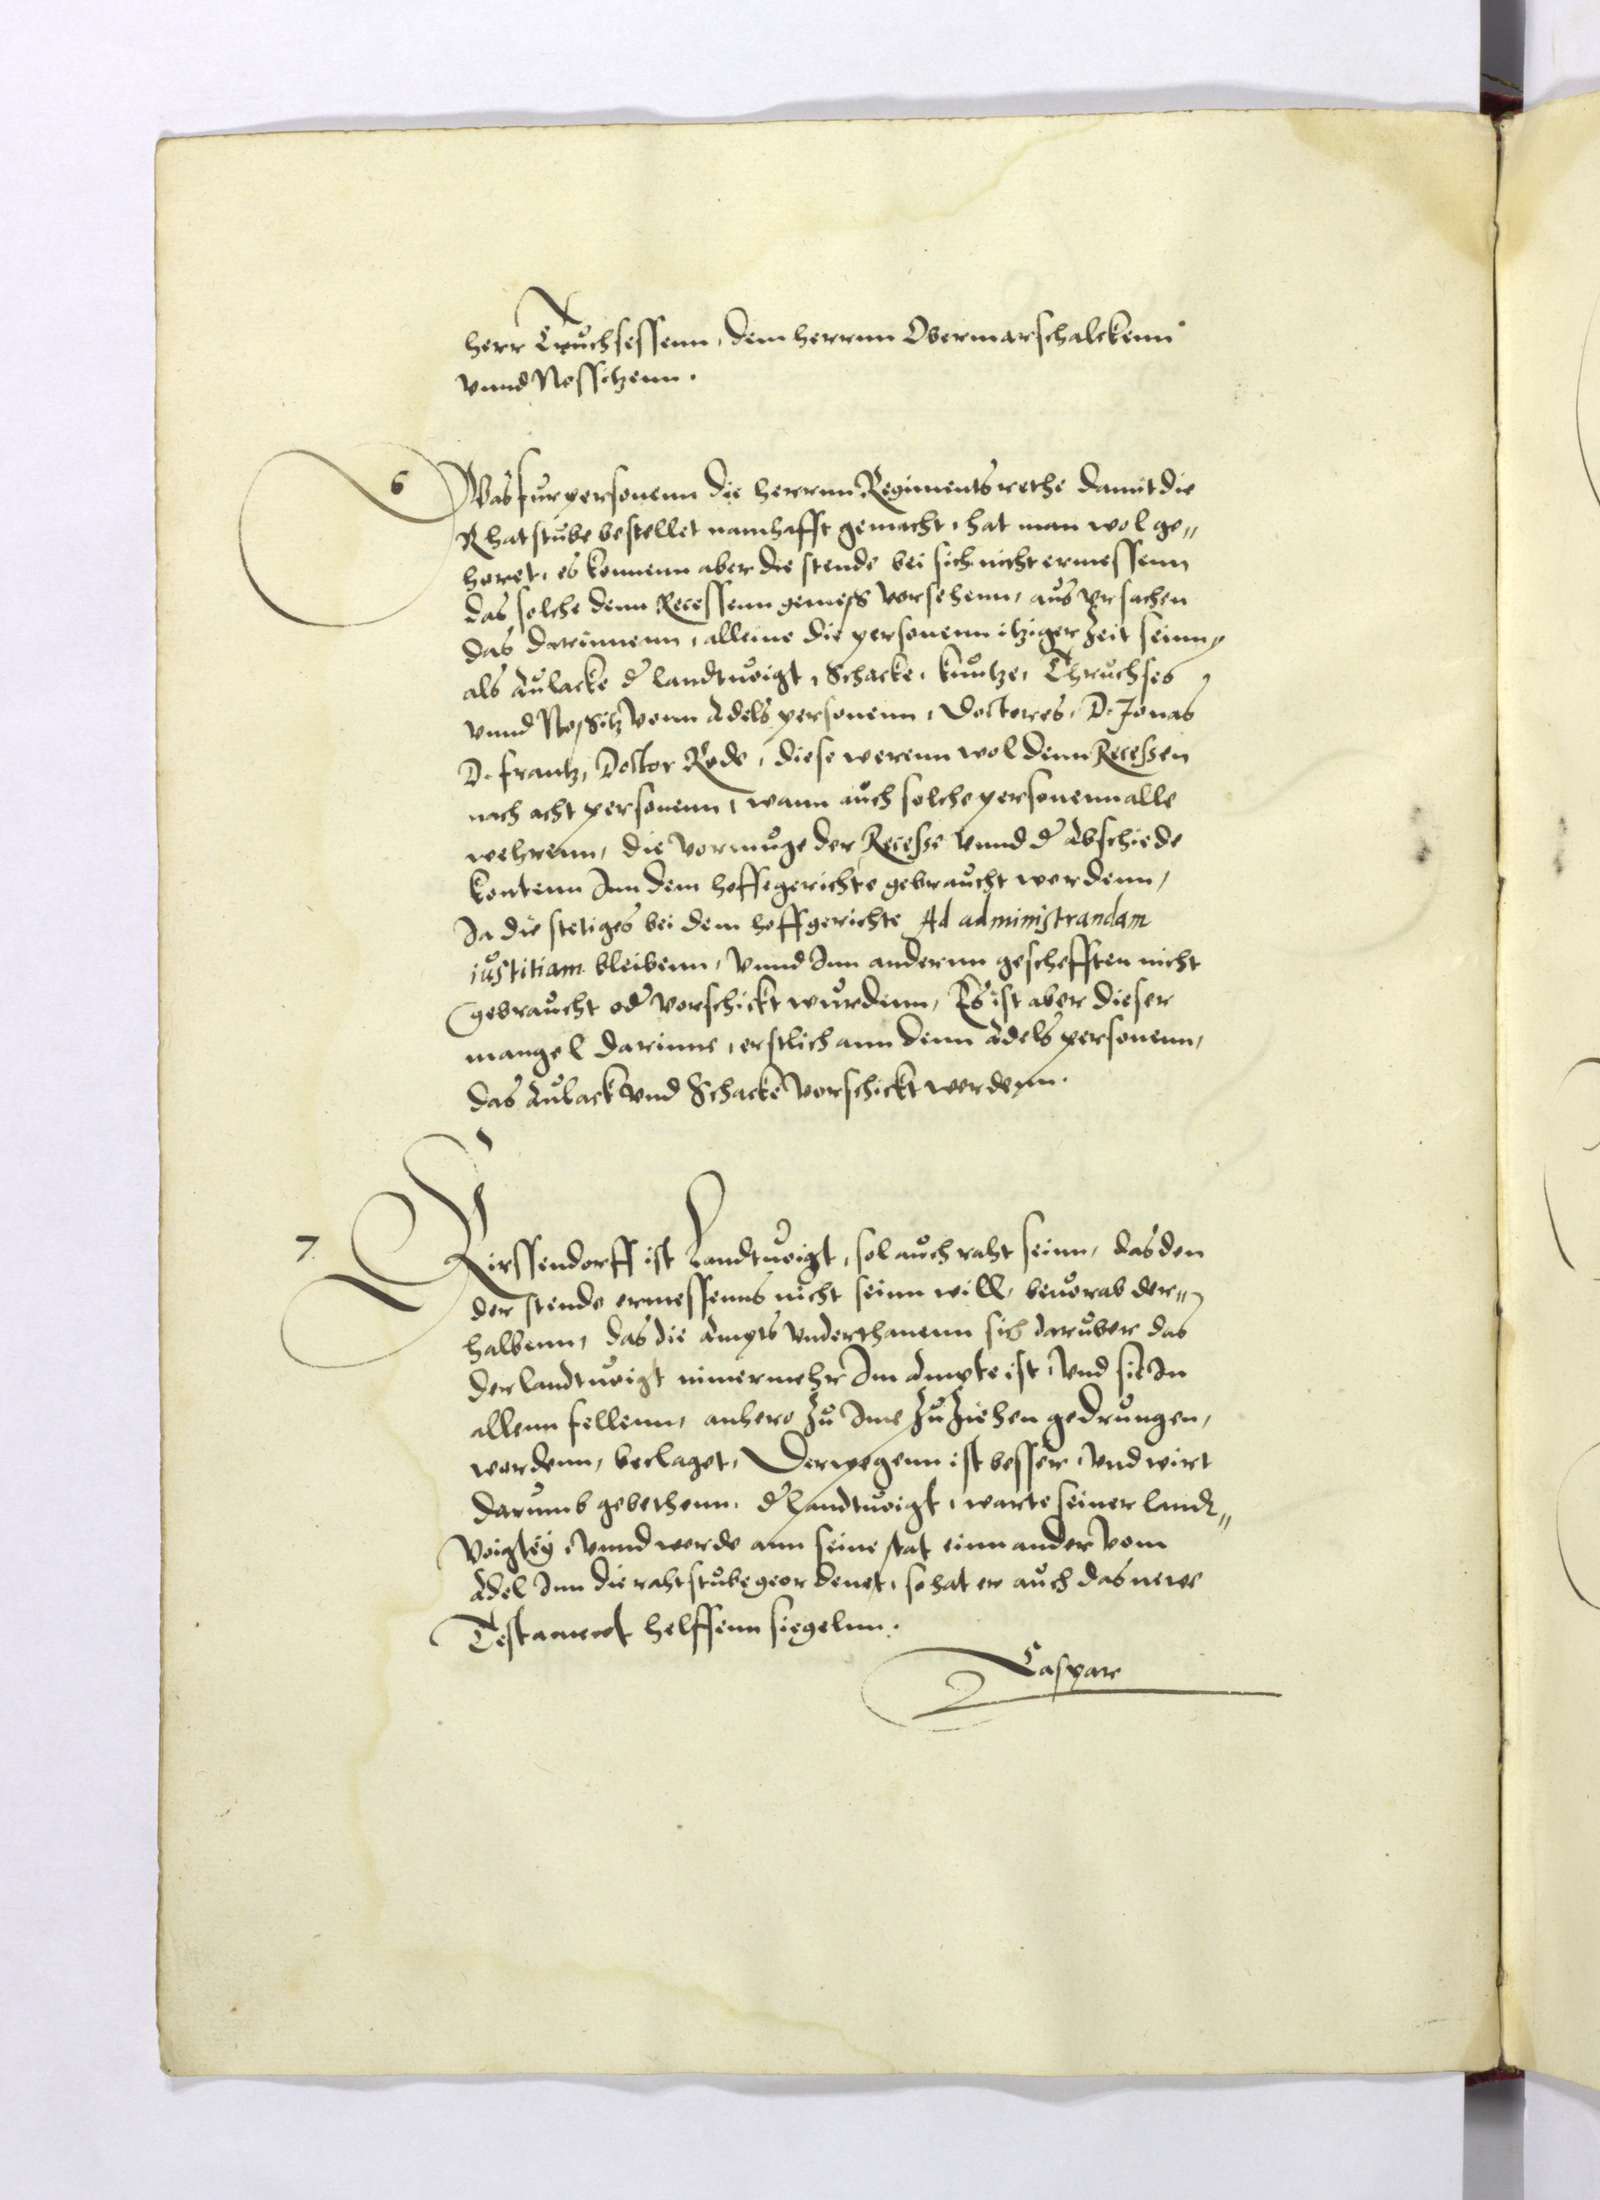 herr Truchsessenn, dem herrnn Obermarschalckenn
vnnd Nossitzenn.
6 Was fur personenn die herrnn Regiments rethe damit die
Rhatstube bestellet namhafft gemacht, hat man wol ge„
horet, es konnenn aber die stende bei sich nicht ermessenn
das solche denn Recessenn gemess vorsehenn, aus vrsachen
das darinnenn, alleine die personenn itziger Zeit seinn,
als Aulacke d landtuoigt, Schacke, Kuntze, Thruchses
vnnd Nossitz vonn Adels personenn, Doctores, D. Jonas
D. Frantz, Doctor Rode, diese werenn wol denn Recessen
nach acht personenn, wann auch solche personenn alle
wehrenn, die vormuge der Recesse vnnd d Abschiede
kontenn Inn dem hoffegerichte gebraucht werdenn,
Ja die stetiges bei dem hoffgerichte Ad administrandam
iustitiam bleibenn, vnnd Inn andernn gescheften nicht
gebraucht od vorschickt wurdenn, Es ist aber dieser
mangel darinne, erstlich ann denn Adels personenn,
das Aulack vnd Schacke vorschickt werdenn.
7. Kirssendorff ist Landtuoigt, sol auch raht seinn, das den
der stende ermessenns nicht seinn will, beuorab der„
halbenn, das die Ampts vnderthanenn sich daruber das
der landtuoigt nimermehr Im Ampte ist, vnd sie In
allenn fellenn, anhero Zu Ime Zu Ziehen gedrungen,
werdenn, beclaget, Derwegenn ist besser, vnd wirt
darumb gebethenn, d Landtuoigt, warte seiner landt„
voigtey, vnnd werde ann seine stat einn ander vom
Adel Inn die rahtstube geordenet, so hat er auch das newe
Testament helffenn siegelnn.
Caspar